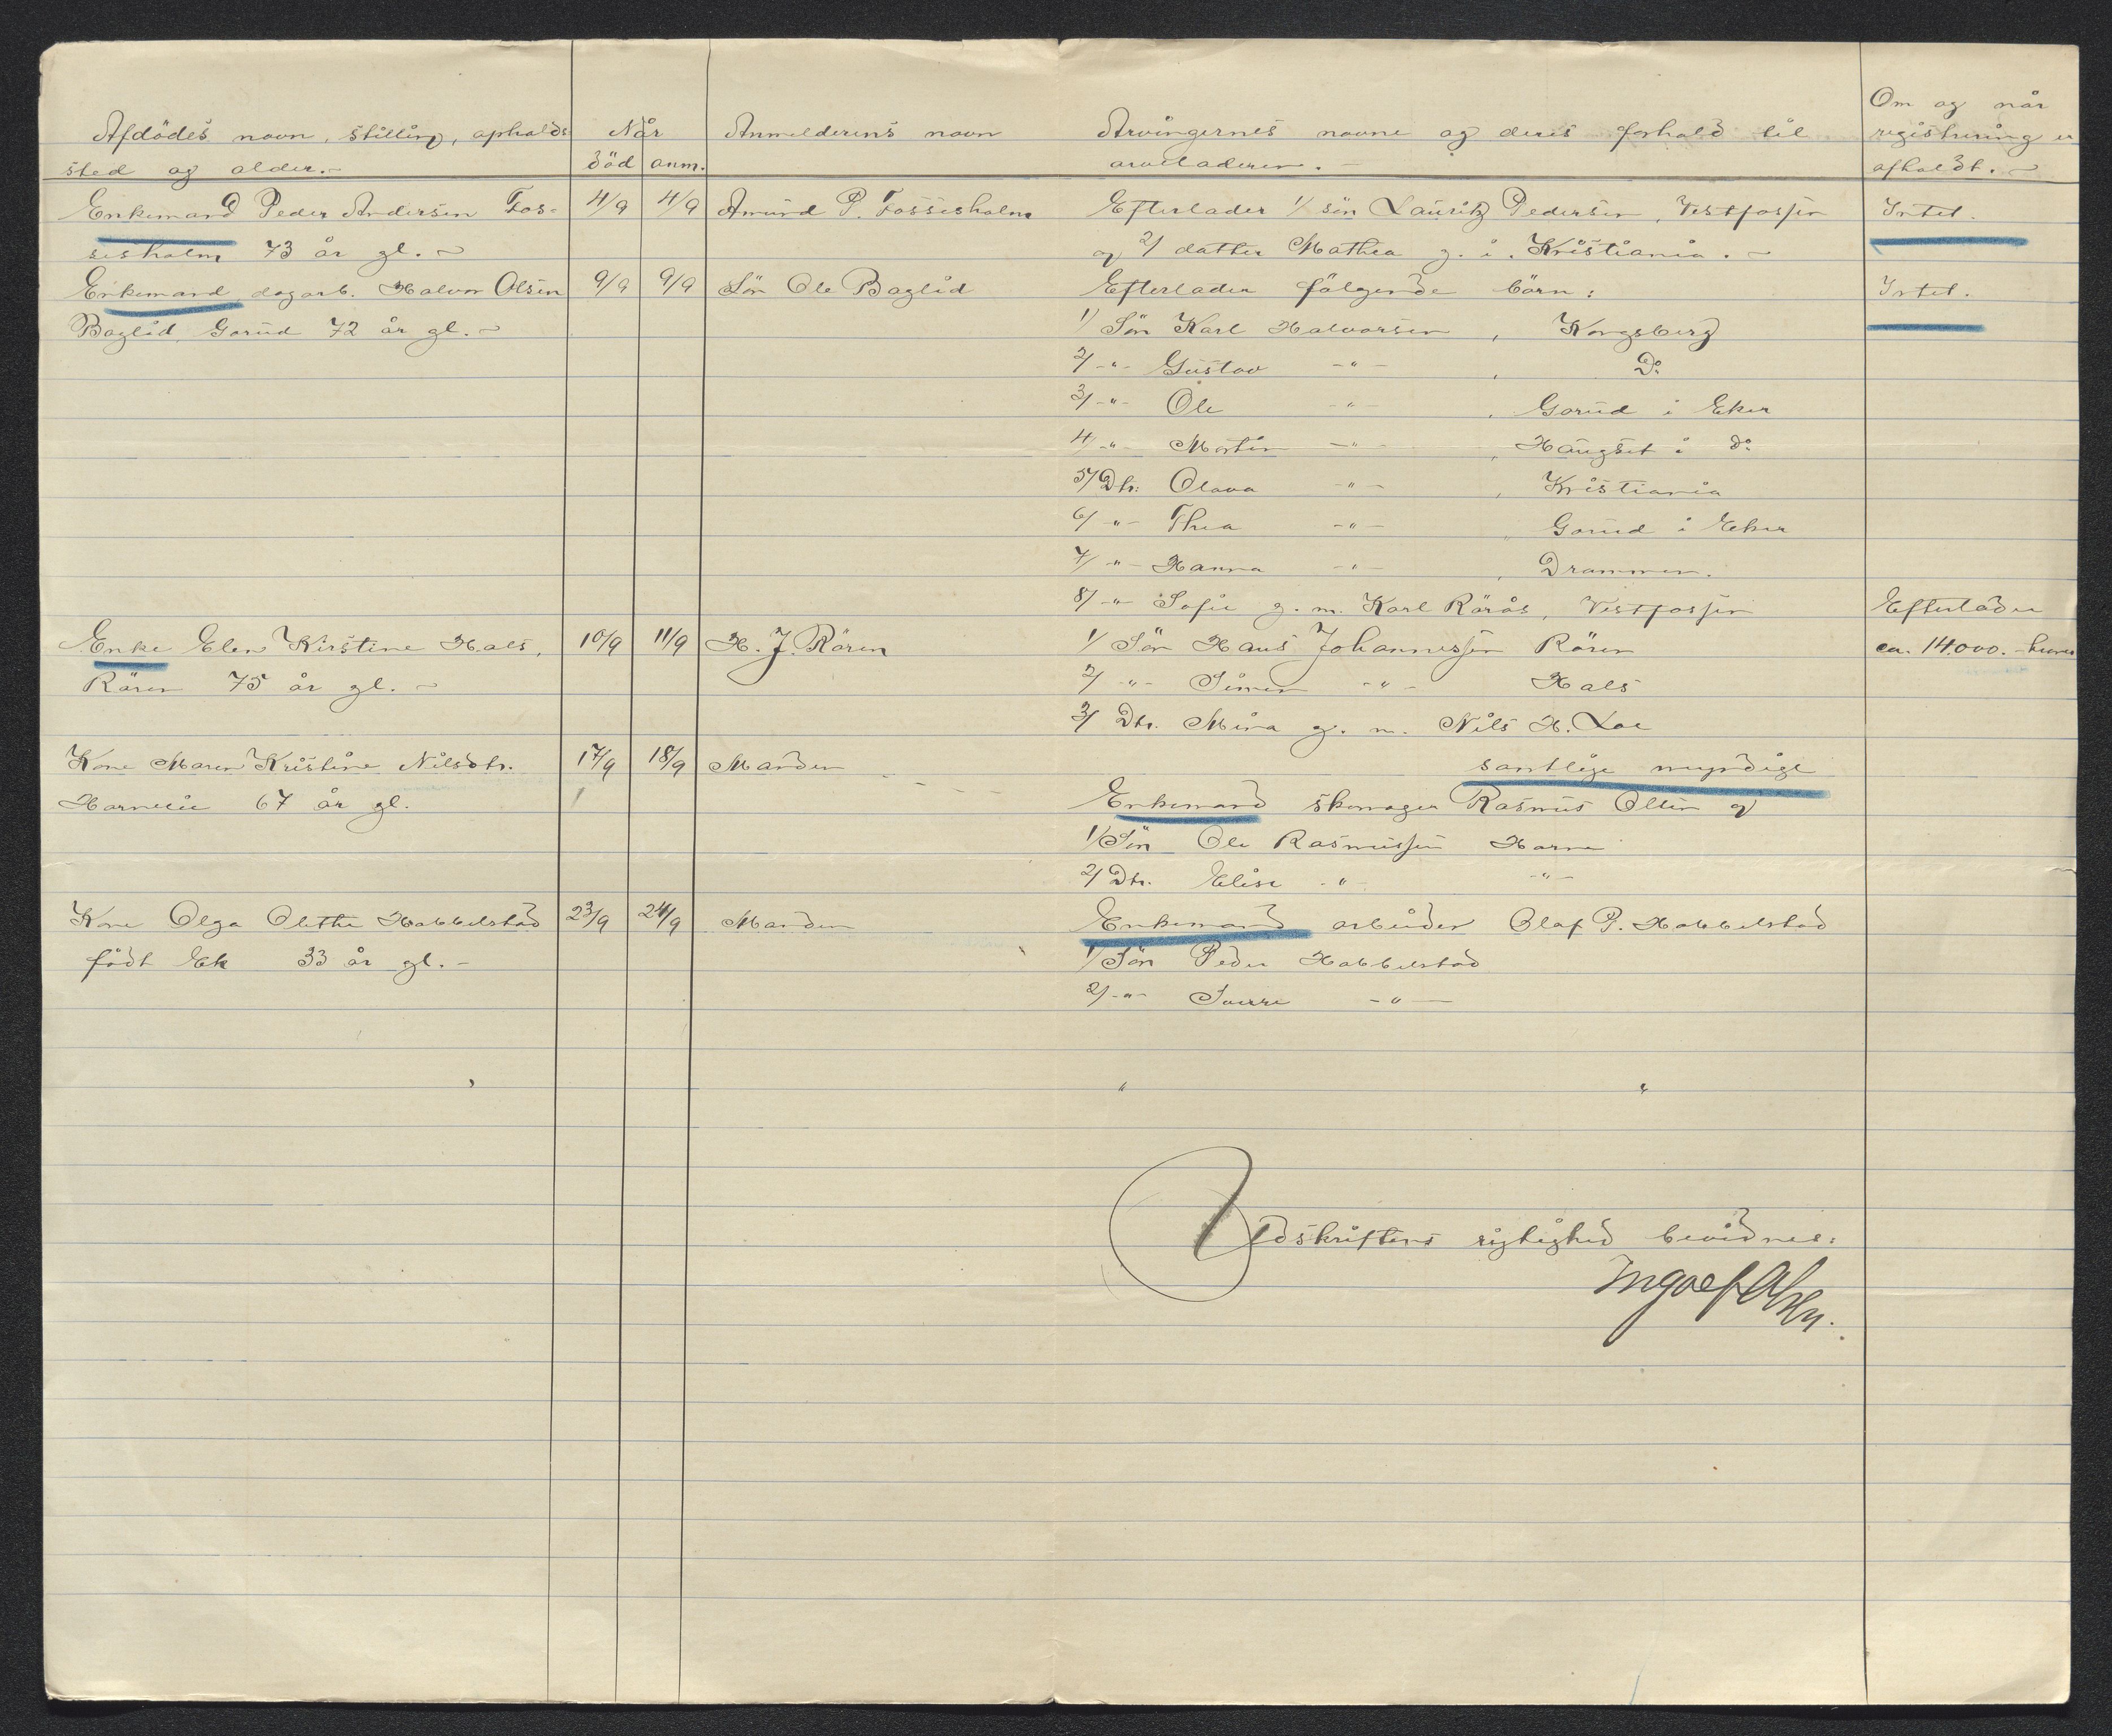 Afdödes navn, stilling, opholds-
sted og alder.-
Når
död anm.
Anmelderens navn
Arvingernes navne og deres forhold til
arveladeren.-
Om og når
registrering er
afholdt.-
Enkemand Peder Andersen Fos-
sesholm 73 år gl.-
4/9 4/9 Amund P. Fossesholm
Efterlader 1/ sön Lauritz Pedersen, Vestfossen
og 2/ datter Mathea g. i. Kristiania.-
Intet.
Enkemand dagarb. Halvor Olsen
Baglid, Gorud 72 år gl.-
9/9 9/9 Sön Ole Baglid
Efterlader fölgende börn:
Intet.
1/ Sön Karl Halvorsen, Kongsberg
2/ -"- Gustav -"- , Do
3/ -"- Ole -"- , Gorud i Eker
4/ -"- Martin -"- , Haugset i do
5/ Dtr. Olava -"- , Kristiania
6/ -"- Thea -"- , Gorud i Eker
7/ -"- Hanna -"- , Drammen.
8/ -"- Sofie g. m. Karl Rörås, Vestfossen
Enke Elen Kirstine Hals,
Rören 75 år gl.-
10/9 11/9 H. J. Rören
1/ Sön Hans Johannessen Rören
2/ -"- Simen -"- Hals
3/ Dtr. Mina g. m. Nils H. Loe
samtlige myndige
Efterlader
ca. 14.000.- kroner
Kone Maren Kristine Nilsdtr.
67 år gl.
17/9 18/9 Manden
Enkemand skomager Rasmus Olsen og
1/ Sön Ole Rasmussen Harne
2/ Dtr. Elise -"- -"-
Kone Olga Olethe Hobbelstad
födt Ek 33 år gl.-
23/9 24/9 Manden
Enkemand arbeider Olaf P. Hobbelstad
1/ Sön Peder Hobbelstad
2/ -"- Sverre -"-
" "
Udskriftens rigtighed bevidnes:
Ingolf Olsen.